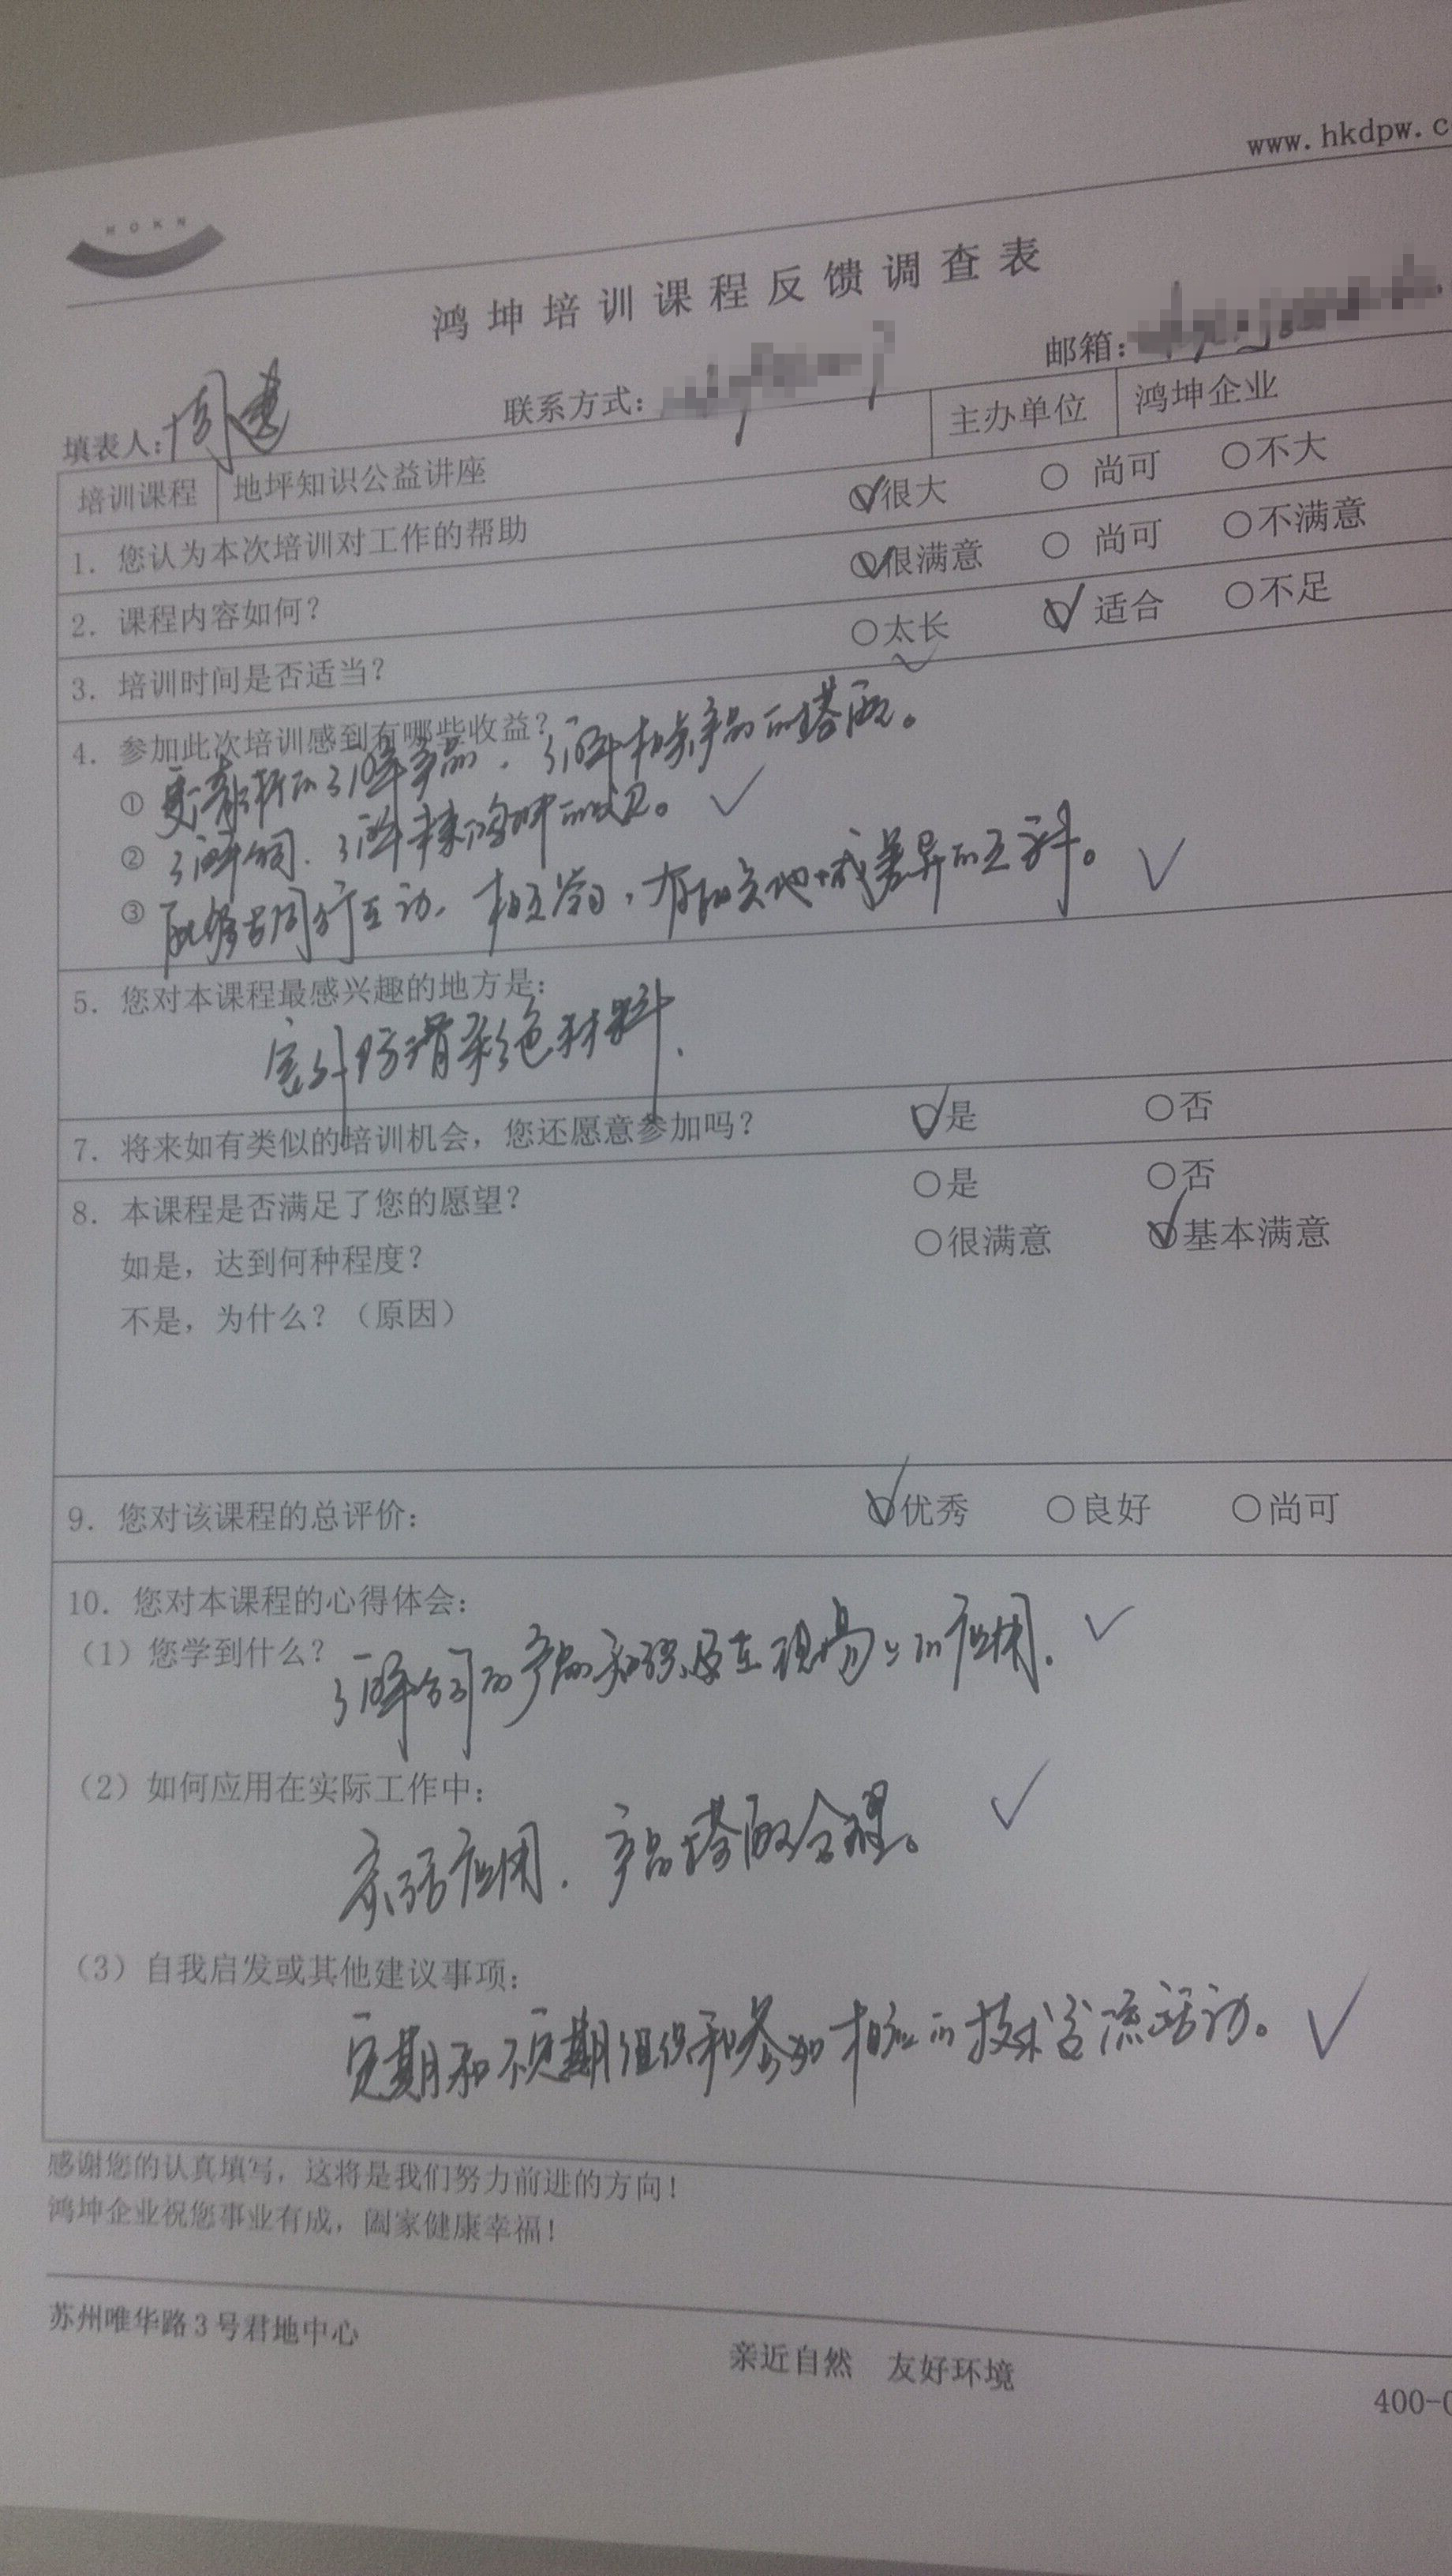 www.hkdpw.c
HOKN
鸿坤培训课程反馈调查表
填表人：周建 联系方式： 邮箱：
培训课程 地坪知识公益讲座 主办单位 鸿坤企业
1. 您认为本次培训对工作的帮助 很大 尚可 不大
2. 课程内容如何？ 很满意 尚可 不满意
3. 培训时间是否适当？ 太长 适合 不足
4. 参加此次培训感到有哪些收益？
① 更清晰的了解产品，了解相关产品的搭配。
② 了解公司、了解未来鸿坤的
③ 能够与同行互动，相互学习，有
5. 您对本课程最感兴趣的地方是：
室外防滑彩色材料.
7. 将来如有类似的培训机会，您还愿意参加吗？ 是 否
8. 本课程是否满足了您的愿望？ 是 否
如是，达到何种程度？ 很满意 基本满意
不是，为什么？（原因）
9. 您对该课程的总评价： 优秀 良好 尚可
10. 您对本课程的心得体会：
（1）您学到什么？
了解公司的产品和在现场上的应用.
（2）如何应用在实际工作中：
灵活应用. 产品搭配合理。
（3）自我启发或其他建议事项：
定期和不定期组织和参加相应的技术交流活动。
感谢您的认真填写，这将是我们努力前进的方向！
鸿坤企业祝您事业有成，阖家健康幸福！
苏州唯华路3号君地中心
亲近自然 友好环境
400-0